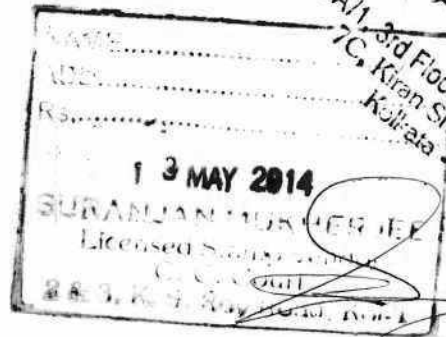 A/1, 3rd Floo
7C, Kiran S
Kolkata
NAME
ADD
Rs.
1 3 MAY 2014
SURANJAN MUKHERJEE
Licensed Stamp
C. C. Court
2 & 3, K. S. Roy Road, Kol-1